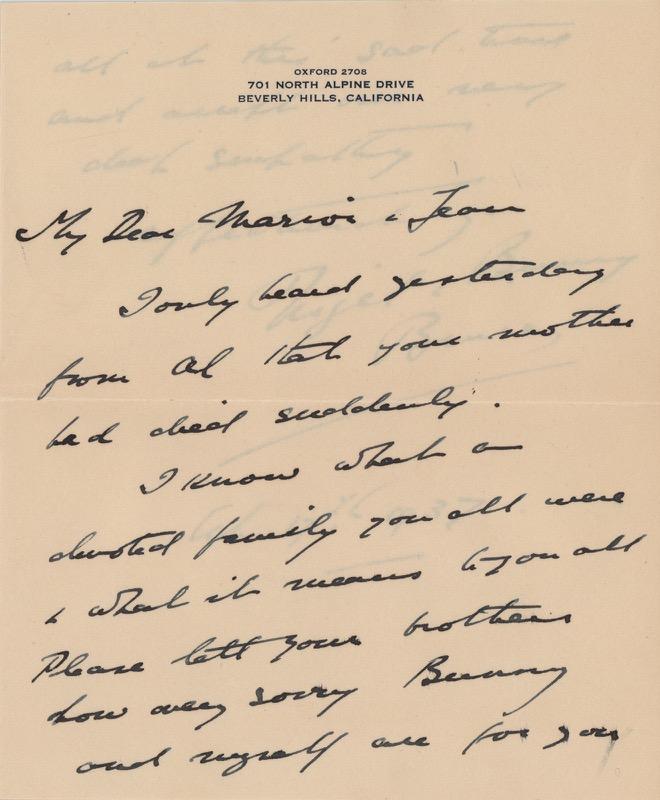 OXFORD 2708
701 NORTH ALPINE DRIVE
BEVERLY HILLS, CALIFORNIA
My Dear Marion & Jean
I only heard yesterday
from Al that your mother
had died suddenly.
I know what a
devoted family you all were
& what it means to you all
Please tell your brothers
how very sorry Bunny
and myself are for you
all at this sad time
and accept our very
deep sympathy